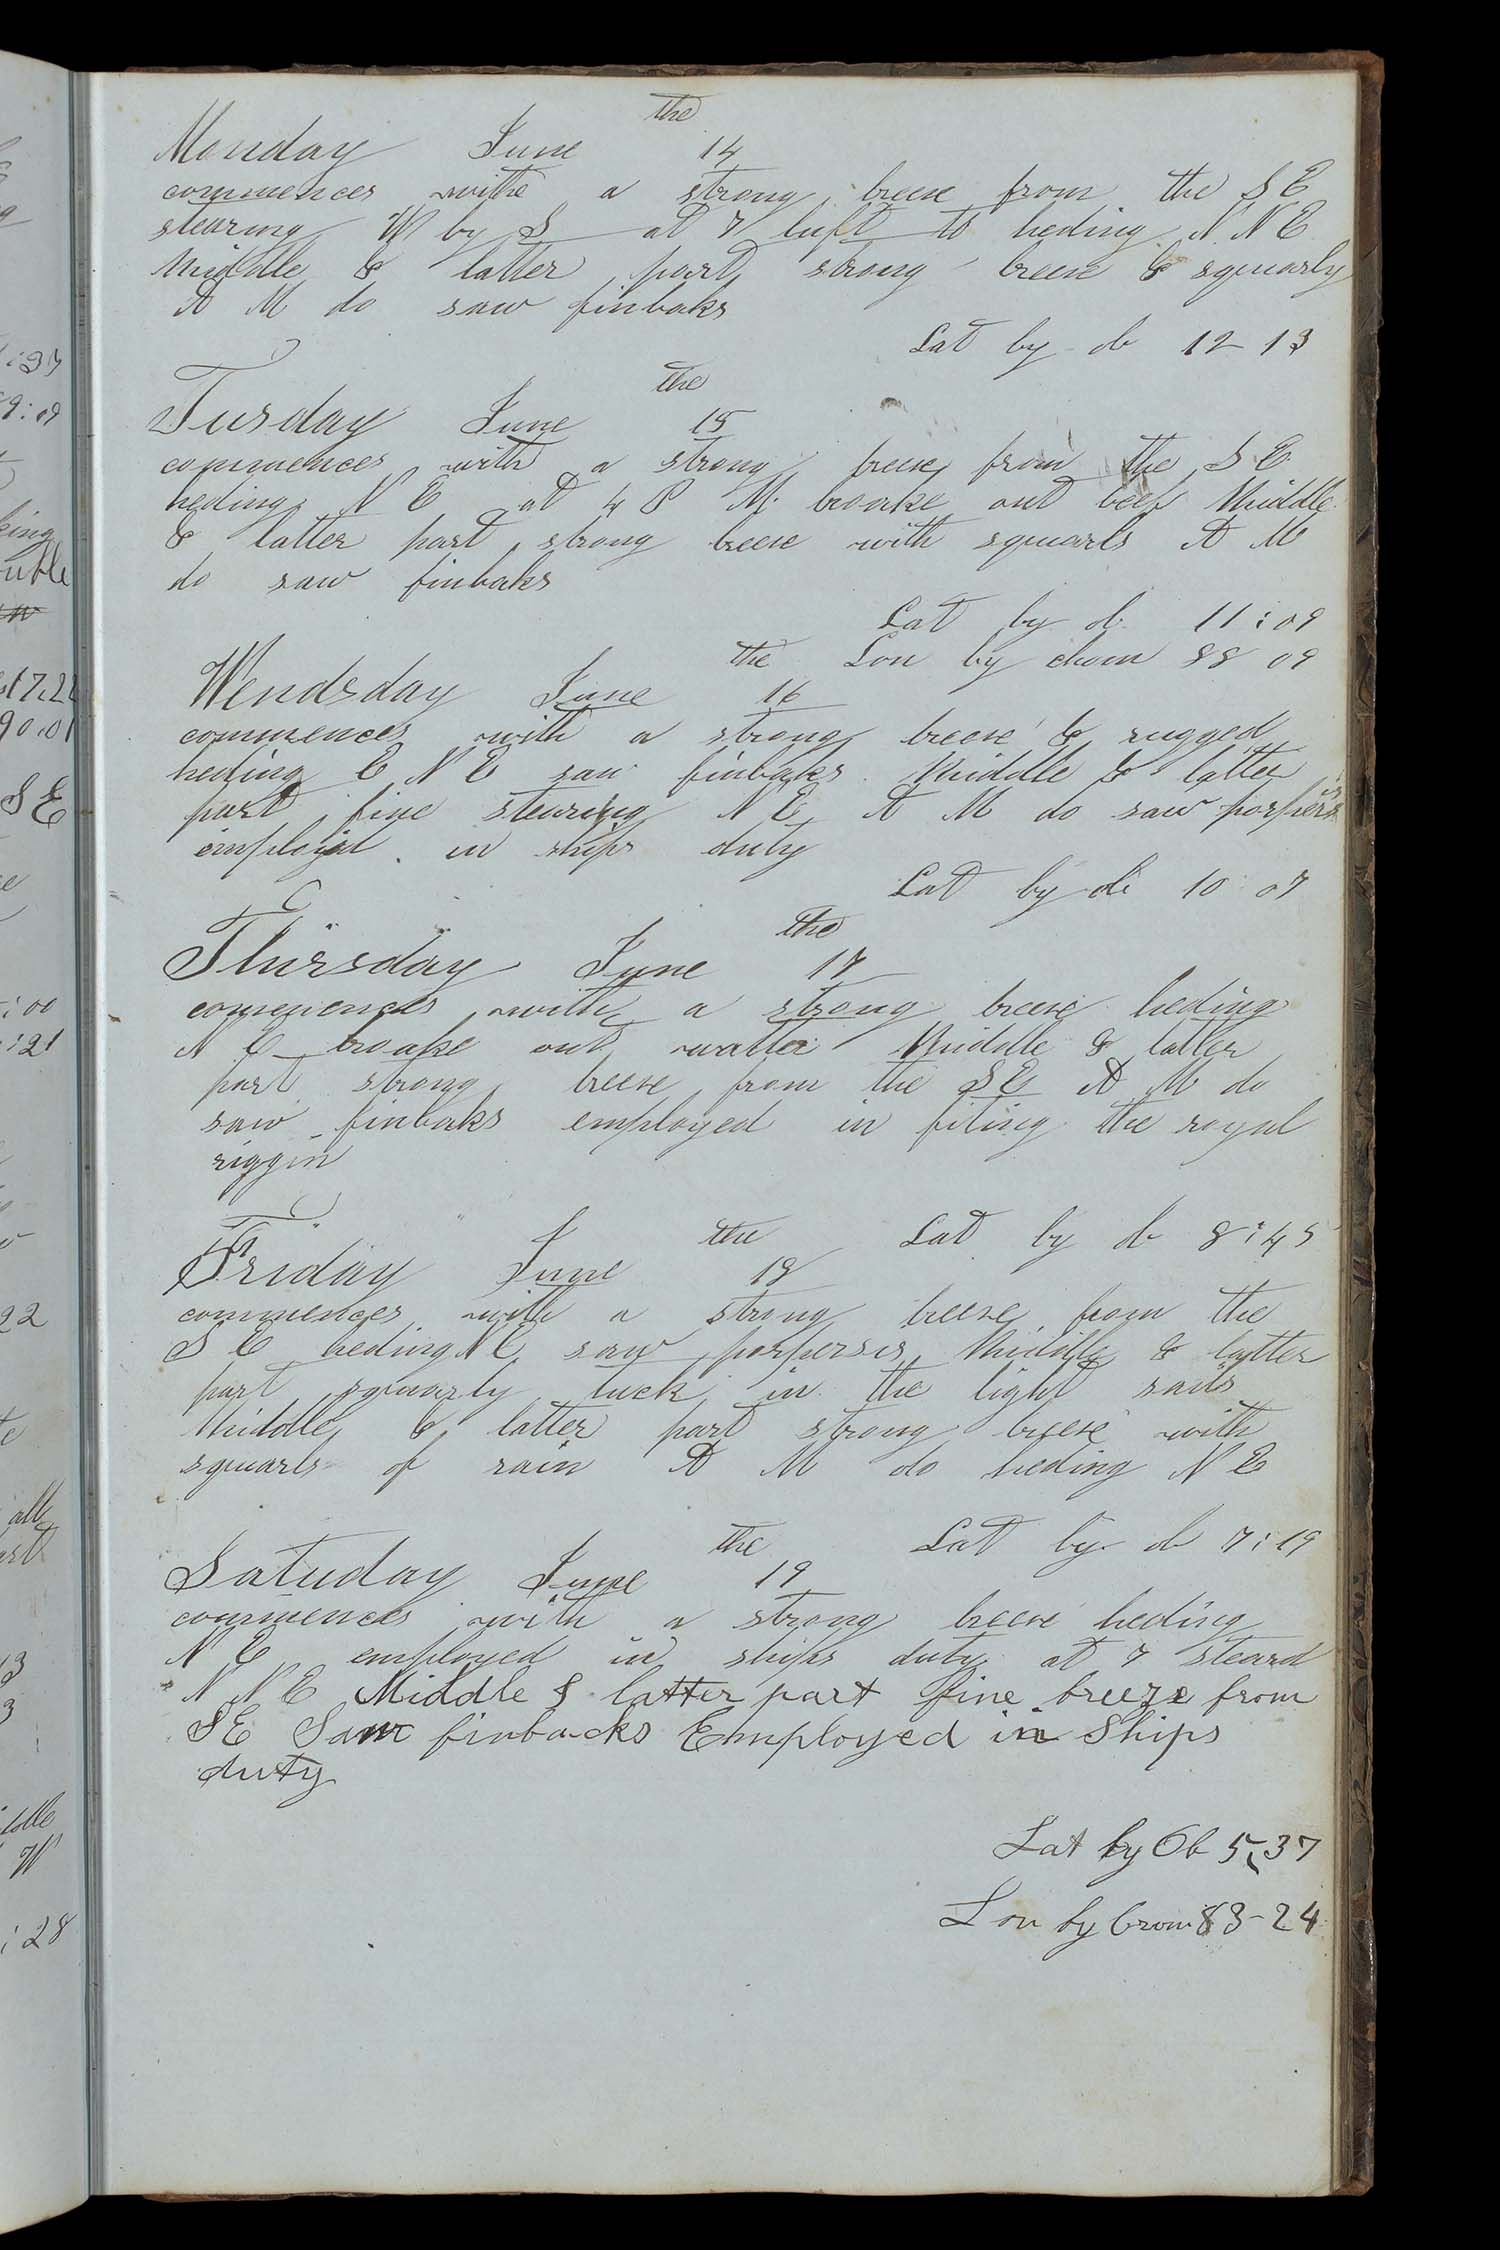 the
Monday June 14
commences withe a strong breese from the S E
stearing W by S at 7 luft to heding N N E
Middle & latter part strong breese & squarly
A M do saw finbaks
Lat by ob 12 13
the
Tusday June 15
commences with a strong breese from the S E
heding N E at 4 P M broake out beef Middle
& latter part strong breese with squarls A M
do saw finbaks
Lat by ob 11:09
the Lon by chom 88 09
Wendsday June 16
commences with a strong breese & rugged
heding E N E saw finbaks Middle & latter
part fine stearing N E A M do saw
in ships duty
Lat by ob 10 07
the
Thursday June 17
commences with a strong breese heding
N E broake out watter Middle & latter
part strong breese from the S E A M do
saw finbaks employed in fiting the royal
riggin
the Lat by ob 8:45
Friday June 18
commences with a strong breese from the
S E heding N E saw porperses Middle & latter
part squarly tuck in the light sails
Middle & latter part strong breese with
squarls of rain A M do heding N E
the Lat by ob 7:19
Satuday June 19
commences with a strong breese heding
N E employed in ships duty at 7 steard
N N E Middle & latter part fine breeze from
SE Saw finbacks Employed in Ships
duty
Lat by Ob 5,37
Lon by Crom 83-24
:37
9:09
king
uble
17,22
90:01
S E
:00
:21
22
all
W
:28